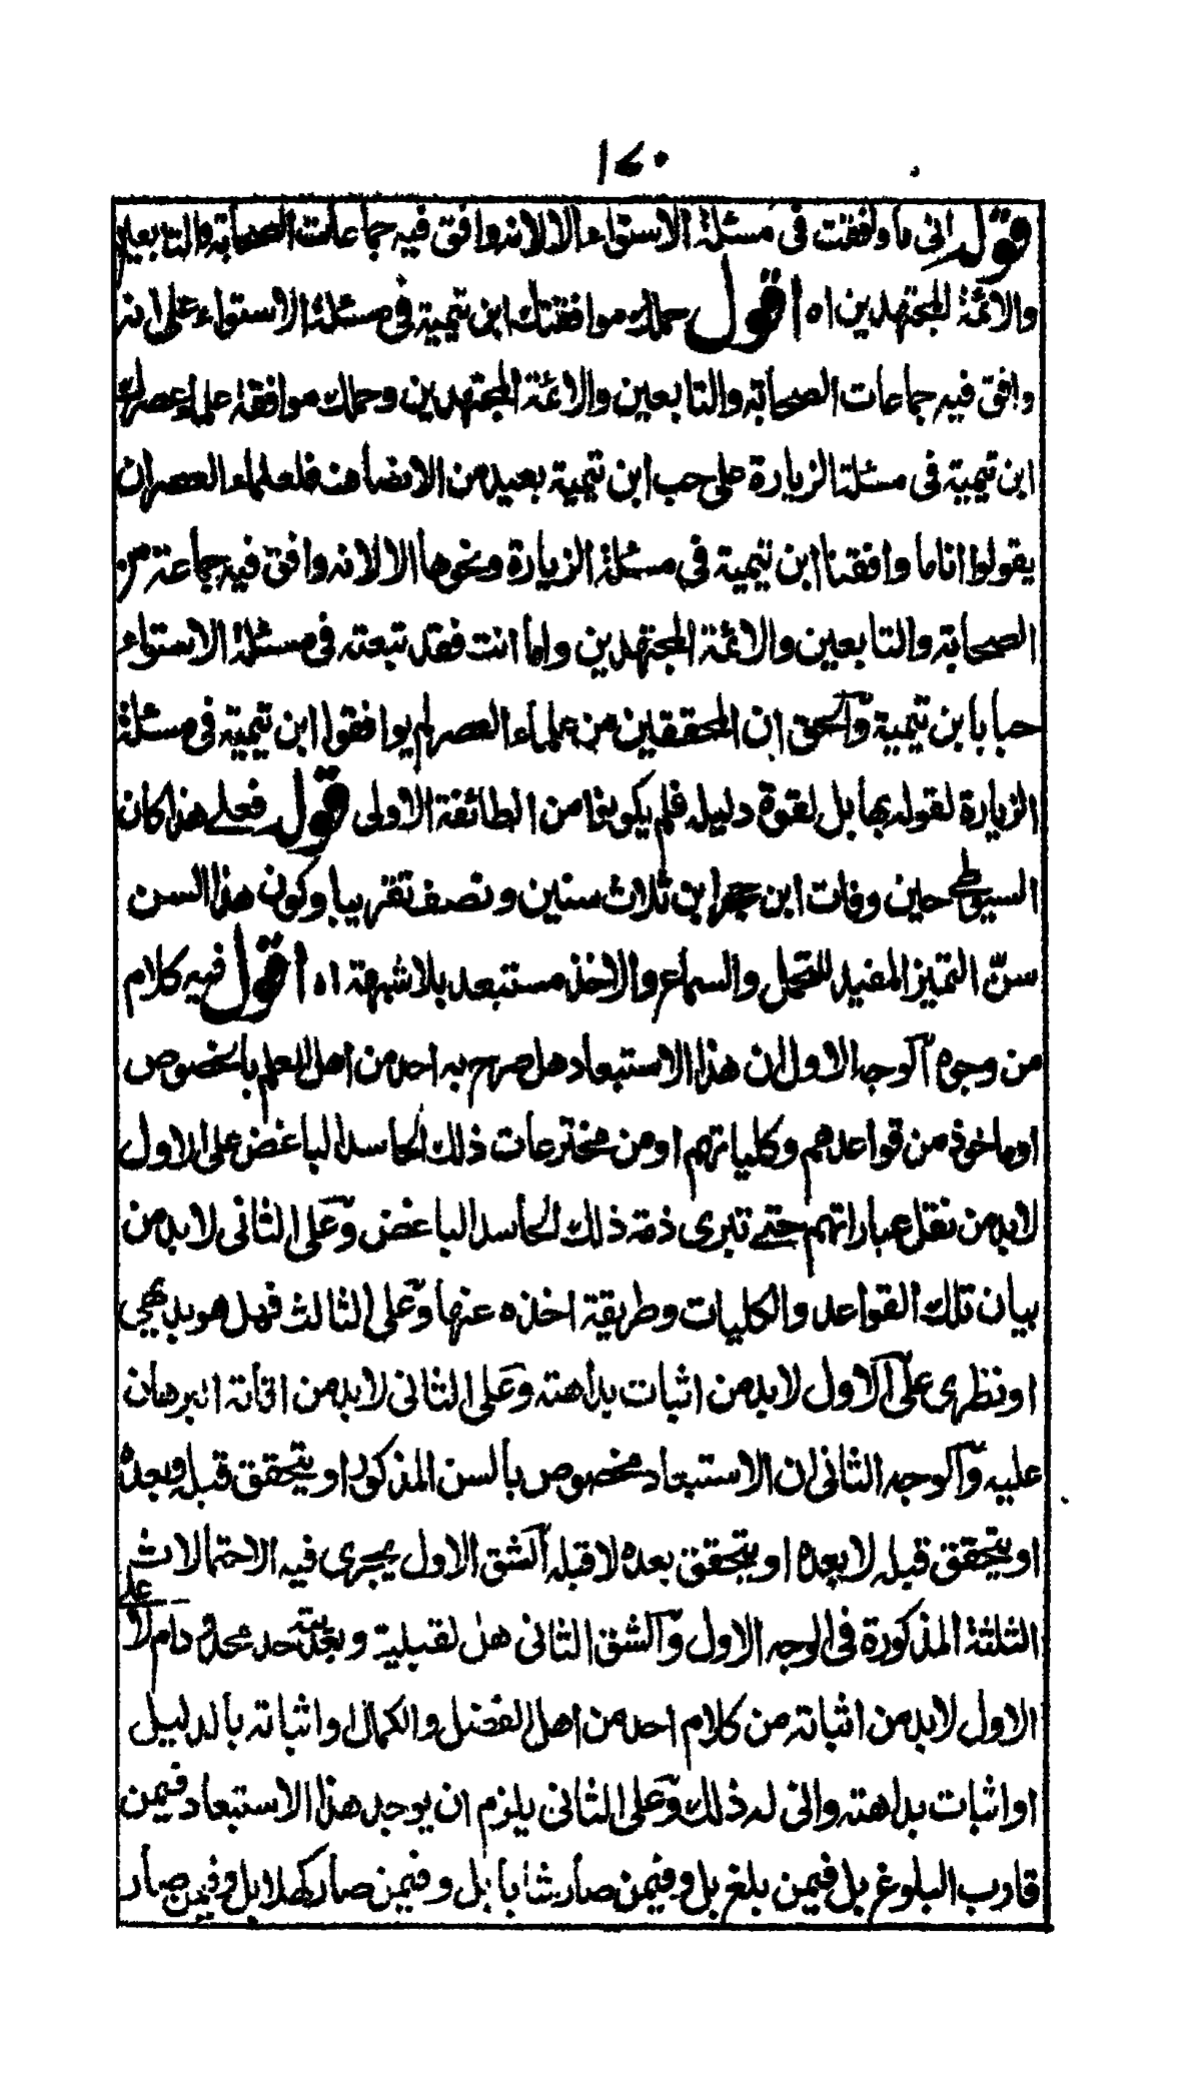 ١٤٠
قوله انى ما وافقت فى مسئلة الاستواء الا لانه وافق فيه جماعات الصحابة والتابعين
والائمة المجتهدين اه اقول حملك موافقتك ابن تيمية فى مسئلة الاستواء على انه
وافق فيه جماعات الصحابة والتابعين والائمة المجتهدين وحملك موافقة علماء عصرك
ابن تيمية فى مسئلة الزيارة على حب ابن تيمية بعيد من الانصاف فلعلماء العصر ان
يقولوا انا ما وافقنا ابن تيمية فى مسئلة الزيارة ونحوها الا لانه وافق فيه جماعة من
الصحابة والتابعين والائمة المجتهدين واما انت فقد تبعته فى مسئلة الاستواء
حبا بابن تيمية والحق ان المحققين من علماء العصر لم يوافقوا ابن تيمية فى مسئلة
الزيارة لقوله بها بل لقوة دليله فلم يكونوا من الطائفة الاولى قوله فعلى هذا كان
السيوطى حين وفات ابن حجر ابن ثلاث سنين ونصف تقريبا وكون هذا السن
سن التميز المفيد للتحمل والسماع والاخذ مستبعد بلا شبهة اه اقول فيه كلام
من وجوه الوجه الاول ان هذا الاستبعاد هل صرح به احد من اهل العلم بالخصوص
او ماخوذ من قواعدهم وكلياتهم او من مخترعات ذلك الحاسد الباغض على الاول
لابد من نقل عباراتهم حتى تبرى ذمة ذلك الحاسد الباغض وعلى الثانى لابد من
بيان تلك القواعد والكليات وطريقة اخذه عنها وعلى الثالث فهل هو بديهي
او نظرى على الاول لابد من اثبات بداهته وعلى الثانى لابد من اقامة البرهان
عليه والوجه الثانى ان الاستبعاد مخصوص بالسن المذكور او يتحقق قبله وبعده
او يتحقق قبله لا بعده او يتحقق بعده لا قبله الشق الاول يجرى فيه الاحتمالات
الثلثة المذكورة فى الوجه الاول والشق الثانى هل لقبلية وبعديته حد محدود ام لا على
الاول لابد من اثباته من كلام احد من اهل الفضل والكمال او اثباته بالدليل
او اثبات بداهته وانى له ذلك وعلى الثانى يلزم ان يوجد هذا الاستبعاد فيمن
قارب البلوغ بل فيمن بلغ بل وفيمن صار شابا بل وفيمن صار كهلا بل وفيمن صار